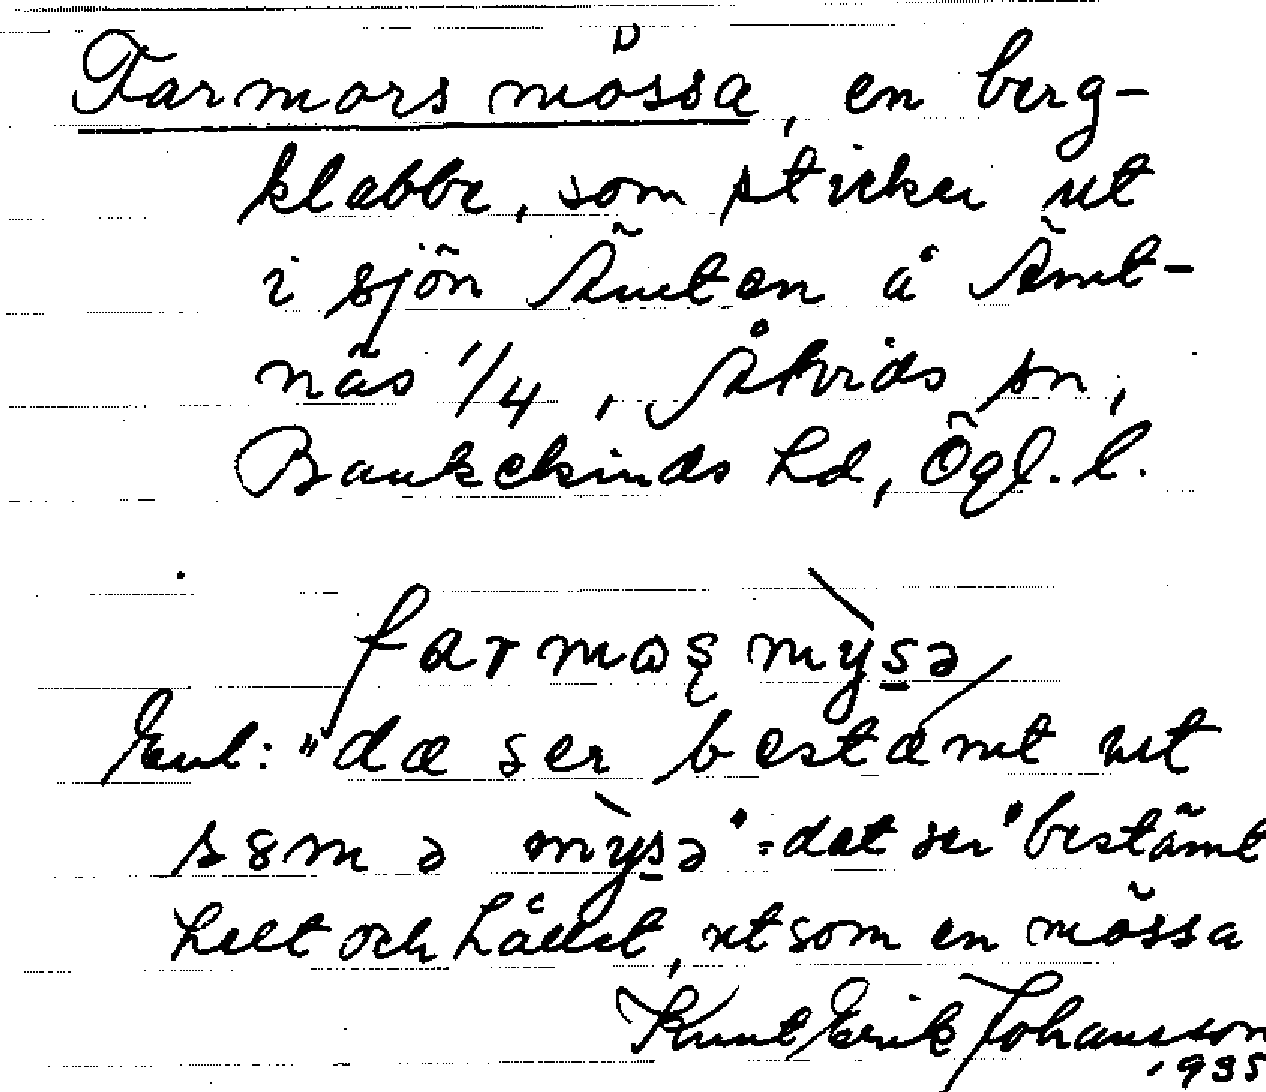 Farmors mössa, en berg-
klabbe, som sticker ut
i sjön Ämten å Ämt-
näs 1/4, Åtvids sn,
Bankekinds hd, Ögl. l.
farmoʂ mỳsə
Enl: "dæ ser bestæmt ut
som ə mỳsə" = det ser "bestämt
helt och hållet, ut som en mössa
Knut Erik Johansson
1935